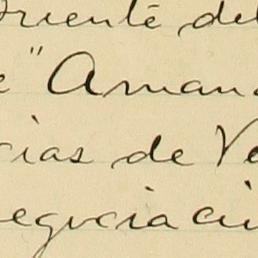 Oriente del
e "Aman
cias de Ve
egociaci